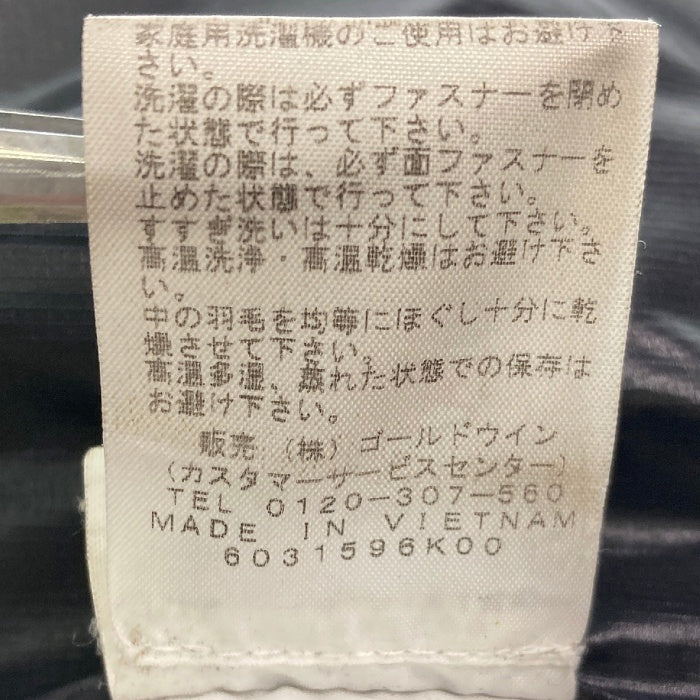 家庭用洗濯機のご使用はお避け下
さい。
洗濯の際は必ずファスナーを閉め
た状態で行って下さい。
洗濯の際は、必ず面ファスナーを
止めた状態で行って下さい。
すすぎ洗いは十分にして下さい。
高温洗浄・高温乾燥はお避け下さ
い。
中の羽毛を均等にほぐし十分に乾
燥させて下さい。
高温多湿、蒸れた状態での保存は
お避け下さい。
販売:(株)ゴールドウイン
(カスタマーサービスセンター)
TEL 0120-307-560
MADE IN VIETNAM
6031596K00